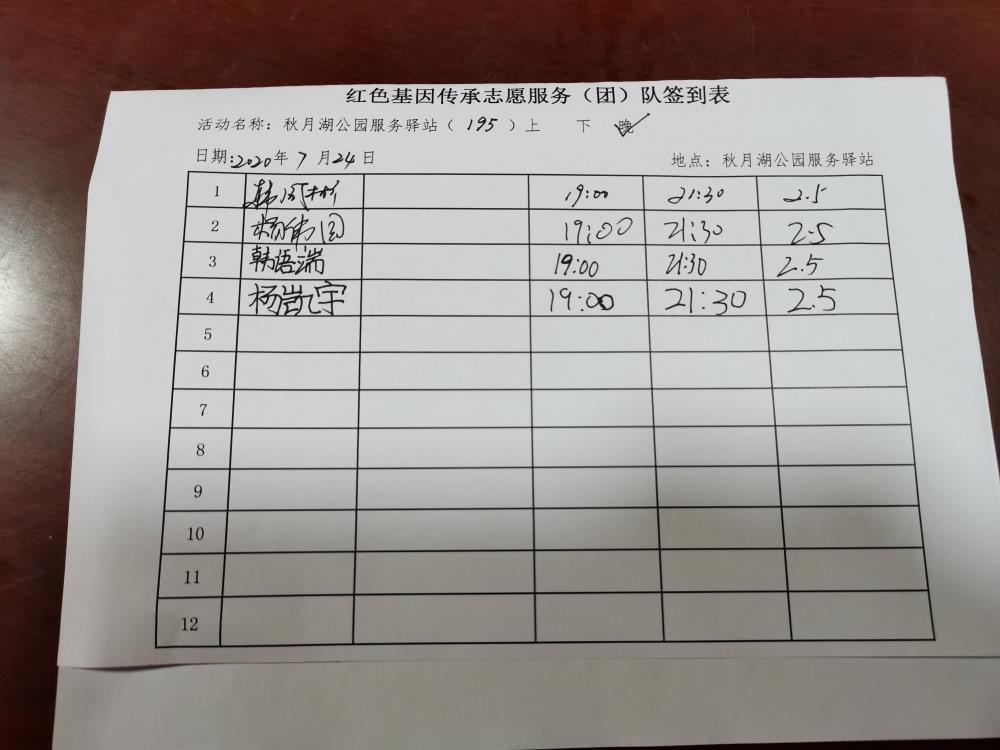 红色基因传承志愿服务（团）队签到表
活动名称：秋月湖公园服务驿站（195）上 下 晚
日期:2020年7月24日 地点：秋月湖公园服务驿站
1 韩 彬 19:00 21:30 2.5
2 杨伟国 19:00 21:30 2.5
3 韩语湍 19:00 21:30 2.5
4 杨凯宇 19:00 21:30 2.5
5
6
7
8
9
10
11
12